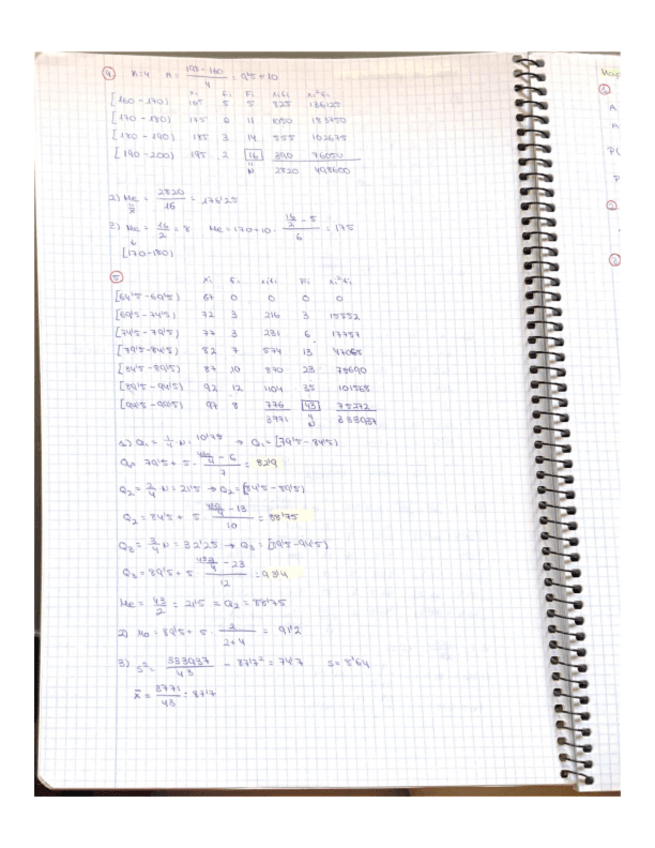 ④ n=4 A = (198-160)/4 = 9'5 ≈ 10
xi fi Fi xifi xi²fi
[160-170) 165 5 5 825 136125
[170-180) 175 6 11 1050 183750
[180-190) 185 3 14 555 102675
[190-200) 195 2 16 390 76050
N 2820 498600
Me = 2820/16 = 176'25
x̄
2) Me = 16/2 = 8 Me = 170+10 · (16/2 - 5)/6 = 175
[170-180)
⑤ xi fi xifi Fi xi²fi
[64'5-69'5) 67 0 0 0 0
[69'5-74'5) 72 3 216 3 15552
[74'5-79'5) 77 3 231 6 17787
[79'5-84'5) 82 7 574 13 47068
[84'5-89'5) 87 10 870 23 75690
[89'5-94'5) 92 12 1104 35 101568
[94'5-99'5) 97 8 776 43 75272
3771 N 333937
1) Q₁ = 1/4 · N = 10'75 → Q₁ = [79'5-84'5)
Q₁ = 79'5 + 5 · (43/4 - 6)/7 = 82'9
Q₂ = 2/4 · N = 21'5 → Q₂ = [84'5-89'5)
Q₂ = 84'5 + 5 · - 13)/10 = 88'75
Q₃ = 3/4 N = 32'25 → Q₃ = [89'5-94'5)
Q₃ = 89'5 + 5 · - 23)/12 = 93'4
Me = 43/2 = 21'5 = Q₂ = 88'75
2) Mo = 89'5 + 5 · 2/(2+4) = 91'2
3) S² = 333937/43 - 87'7² = 74'7 S = 8'64
x̄ = 3771/43 = 87'7